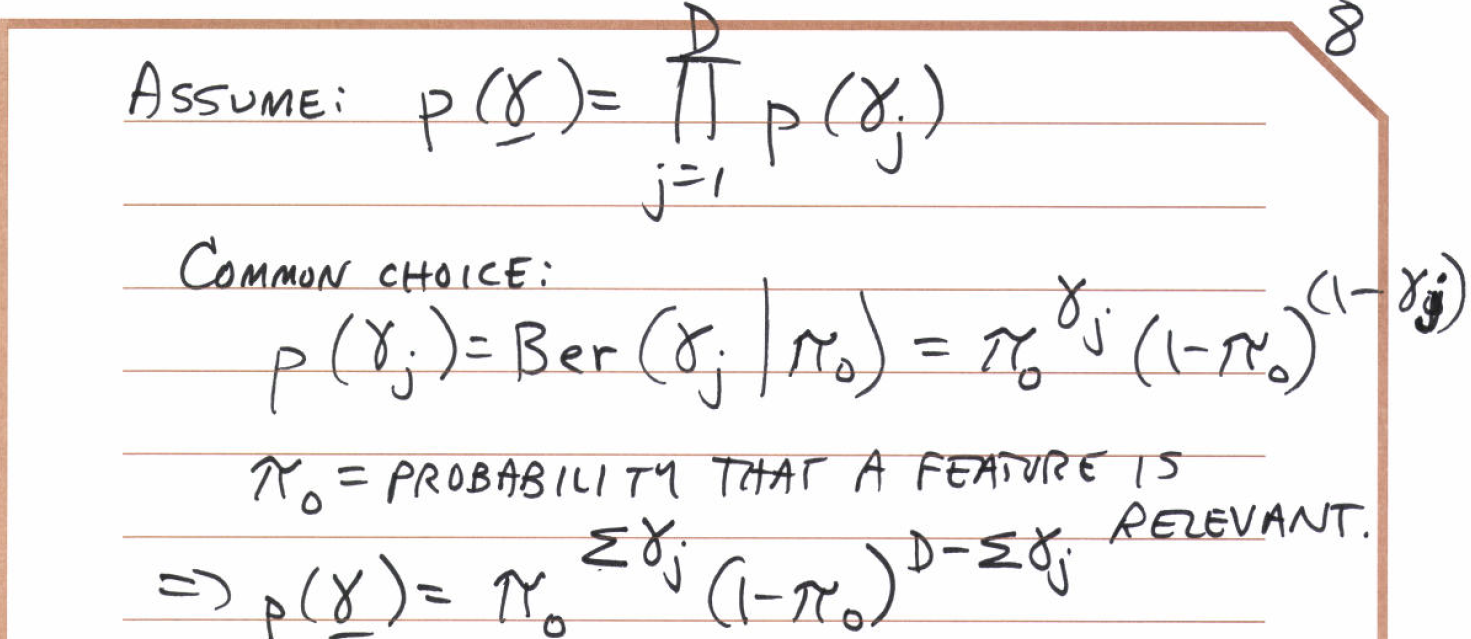 8
ASSUME: p(γ) = ∏_{j=1}^{D} p(γ_j)
COMMON CHOICE:
p(γ_j) = Ber(γ_j | π₀) = π₀^{γ_j} (1-π₀)^{(1-γ_j)}
π₀ = PROBABILITY THAT A FEATURE IS
RELEVANT.
=> p(γ) = π₀^{Σγ_j} (1-π₀)^{D-Σγ_j}